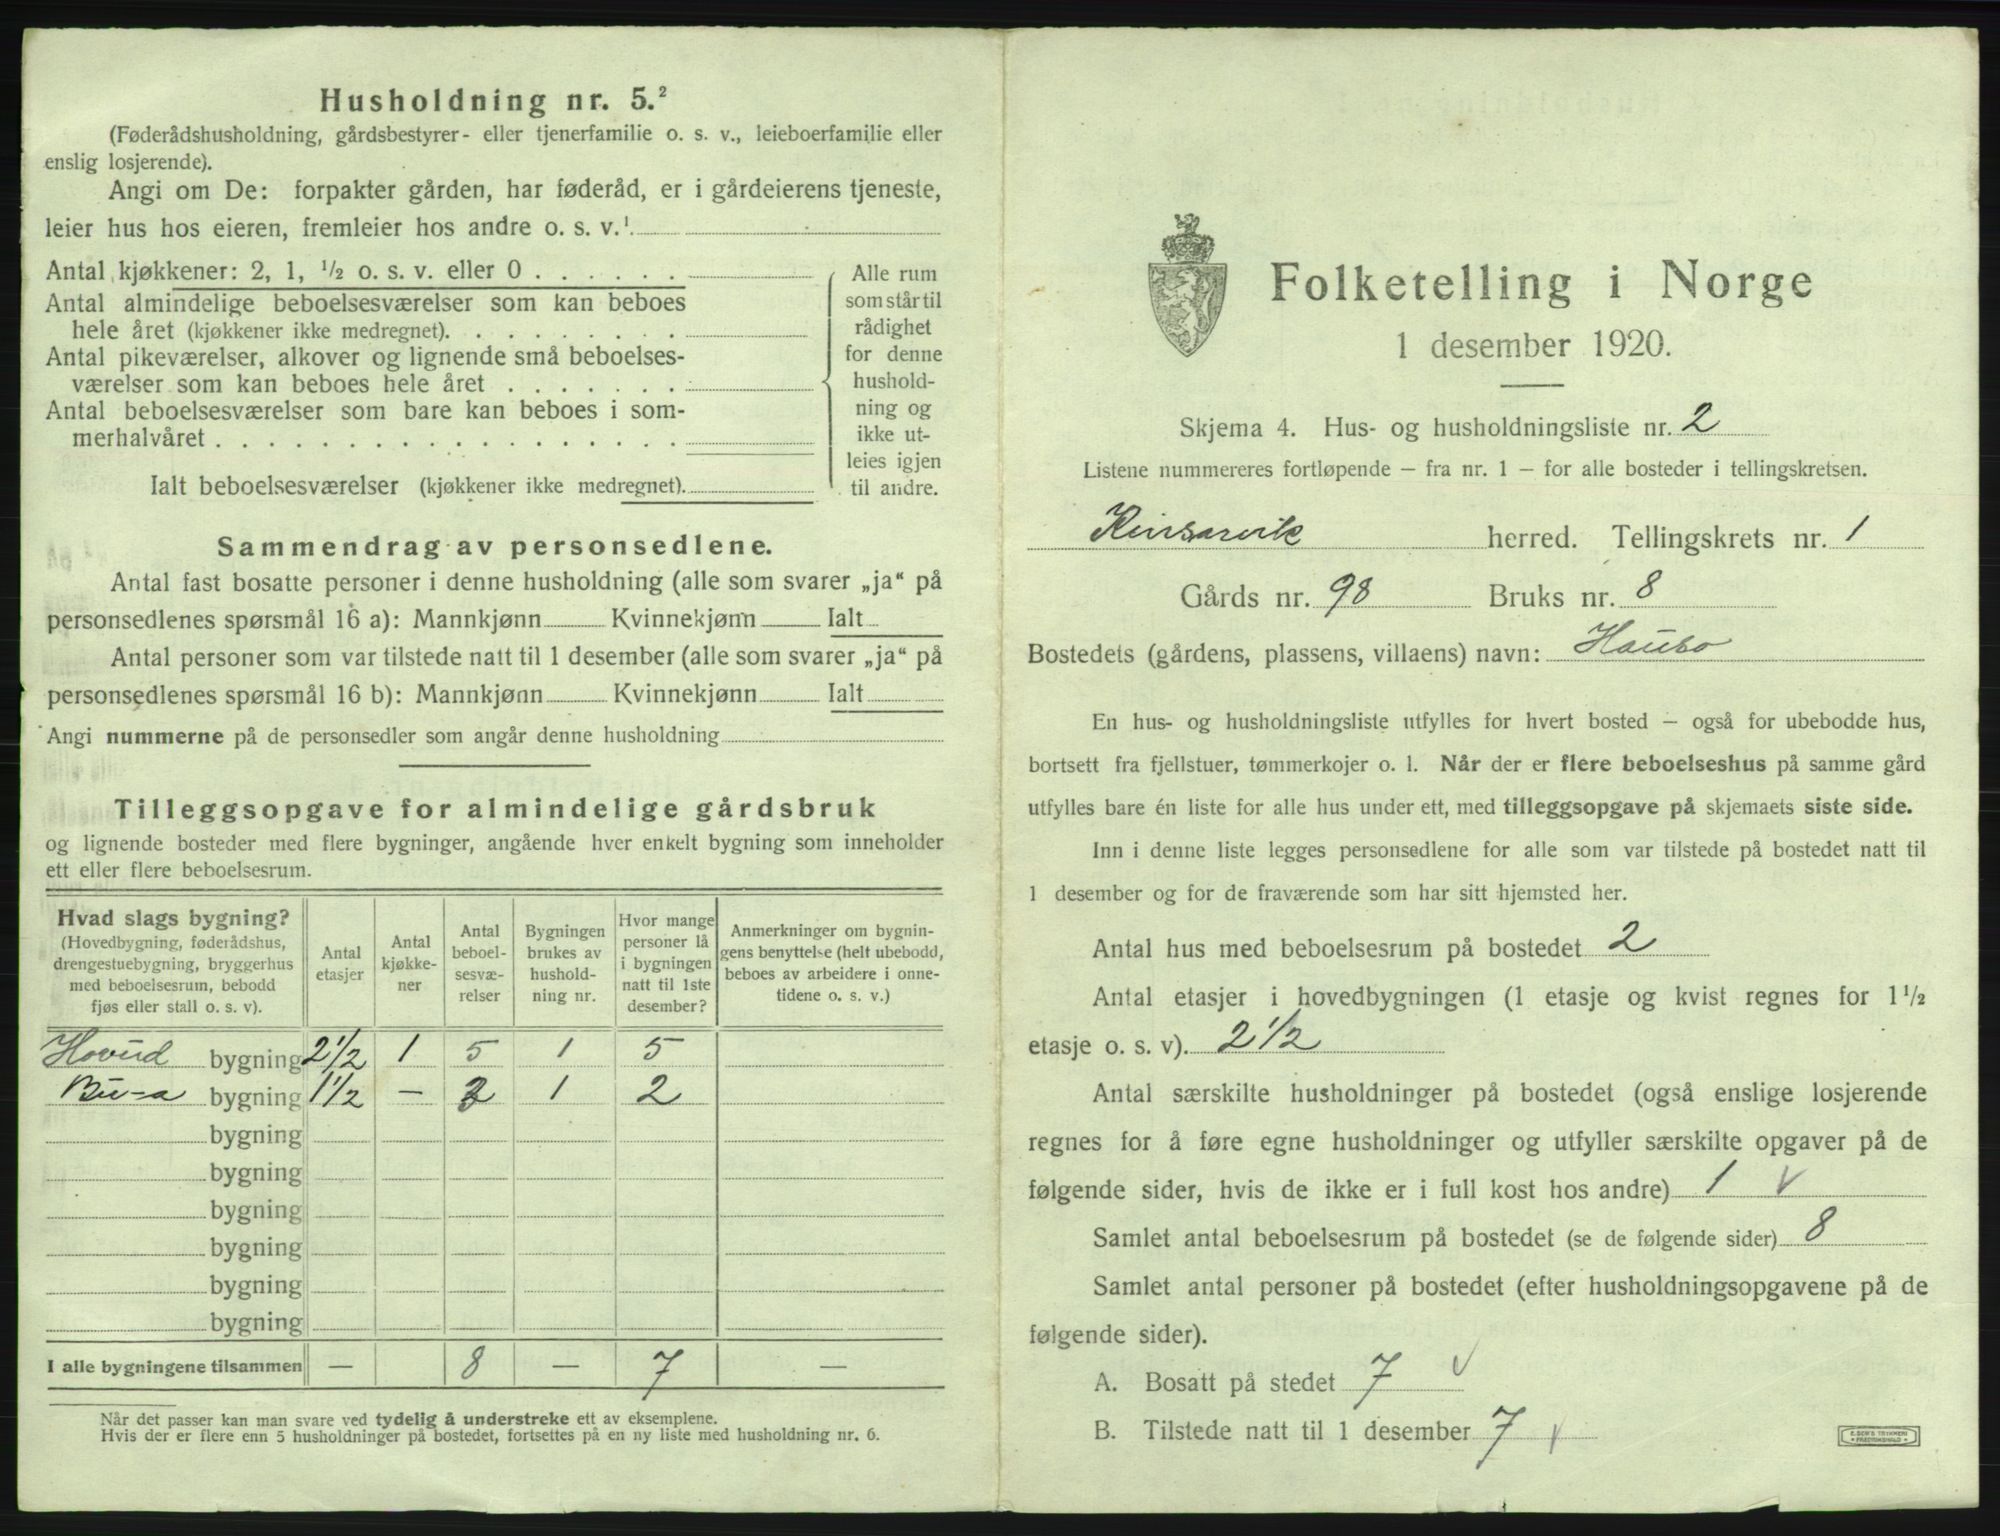 Husholdning nr. 5.²
(Føderådshusholdning, gårdsbestyrer- eller tjenerfamilie o. s. v., leieboerfamilie eller
enslig losjerende).
Angi om De: forpakter gården, har føderåd, er i gårdeierens tjeneste,
leier hus hos eieren, fremleier hos andre o. s. v.¹
Antal kjøkkener: 2, 1, ½ o. s. v. eller 0 . . . . . .
Antal almindelige beboelsesværelser som kan beboes
hele året (kjøkkener ikke medregnet). . . . . . . . .
Antal pikeværelser, alkover og lignende små beboelses-
værelser som kan beboes hele året . . . . . . .
Antal beboelsesværelser som bare kan beboes i som-
merhalvåret . . . . . . . . . . . . . . . . . .
Ialt beboelsesværelser (kjøkkener ikke medregnet).
Alle rum
som står til
rådighet
for denne
hushold-
ning og
ikke ut-
leies igjen
til andre.
Sammendrag av personsedlene.
Antal fast bosatte personer i denne husholdning (alle som svarer „ja“ på
personsedlenes spørsmål 16 a): Mannkjønn Kvinnekjønn Ialt
Antal personer som var tilstede natt til 1 desember (alle som svarer „ja“ på
personsedlenes spørsmål 16 b): Mannkjønn Kvinnekjønn Ialt
Angi nummerne på de personsedler som angår denne husholdning
Tilleggsopgave for almindelige gårdsbruk
og lignende bosteder med flere bygninger, angående hver enkelt bygning som inneholder
ett eller flere beboelsesrum.
Hvad slags bygning?
(Hovedbygning, føderådshus,
drengestuebygning, bryggerhus
med beboelsesrum, bebodd
fjøs eller stall o. s. v).
Antal
etasjer
Antal
kjøkke-
ner
Antal
beboel-
sesvæ-
relser
Bygningen
brukes av
hushold-
ning nr.
Hvor mange
personer lå
i bygningen
natt til 1ste
desember?
Anmerkninger om bygnin-
gens benyttelse (helt ubebodd,
beboes av arbeidere i onne-
tidene o. s. v.)
Hovud bygning 2½ 1 5 1 5
Bu-a bygning 1½ — 3 1 2
bygning
bygning
bygning
bygning
bygning
bygning
I alle bygningene tilsammen — 8 — 7 —
Når det passer kan man svare ved tydelig å understreke ett av eksemplene.
Hvis der er flere enn 5 husholdninger på bostedet, fortsettes på en ny liste med husholdning nr. 6.
Folketelling i Norge
1 desember 1920.
Skjema 4. Hus- og husholdningsliste nr. 2
Listene nummereres fortløpende — fra nr. 1 — for alle bosteder i tellingskretsen.
Kinsarvik herred. Tellingskrets nr. 1
Gårds nr. 98 Bruks nr. 8
Bostedets (gårdens, plassens, villaens) navn: Hauso
En hus- og husholdningsliste utfylles for hvert bosted — også for ubebodde hus,
bortsett fra fjellstuer, tømmerkojer o. l. Når der er flere beboelseshus på samme gård
utfylles bare én liste for alle hus under ett, med tilleggsopgave på skjemaets siste side.
Inn i denne liste legges personsedlene for alle som var tilstede på bostedet natt til
1 desember og for de fraværende som har sitt hjemsted her.
Antal hus med beboelsesrum på bostedet 2
Antal etasjer i hovedbygningen (1 etasje og kvist regnes for 1½
etasje o. s. v). 2½
Antal særskilte husholdninger på bostedet (også enslige losjerende
regnes for å føre egne husholdninger og utfyller særskilte opgaver på de
følgende sider, hvis de ikke er i full kost hos andre) 1 ✓
Samlet antal beboelsesrum på bostedet (se de følgende sider) 8
Samlet antal personer på bostedet (efter husholdningsopgavene på de
følgende sider).
A. Bosatt på stedet 7 ✓
B. Tilstede natt til 1 desember 7 ✓
E. SEM'S TRYKKERI
• FREDRIKSHALD •